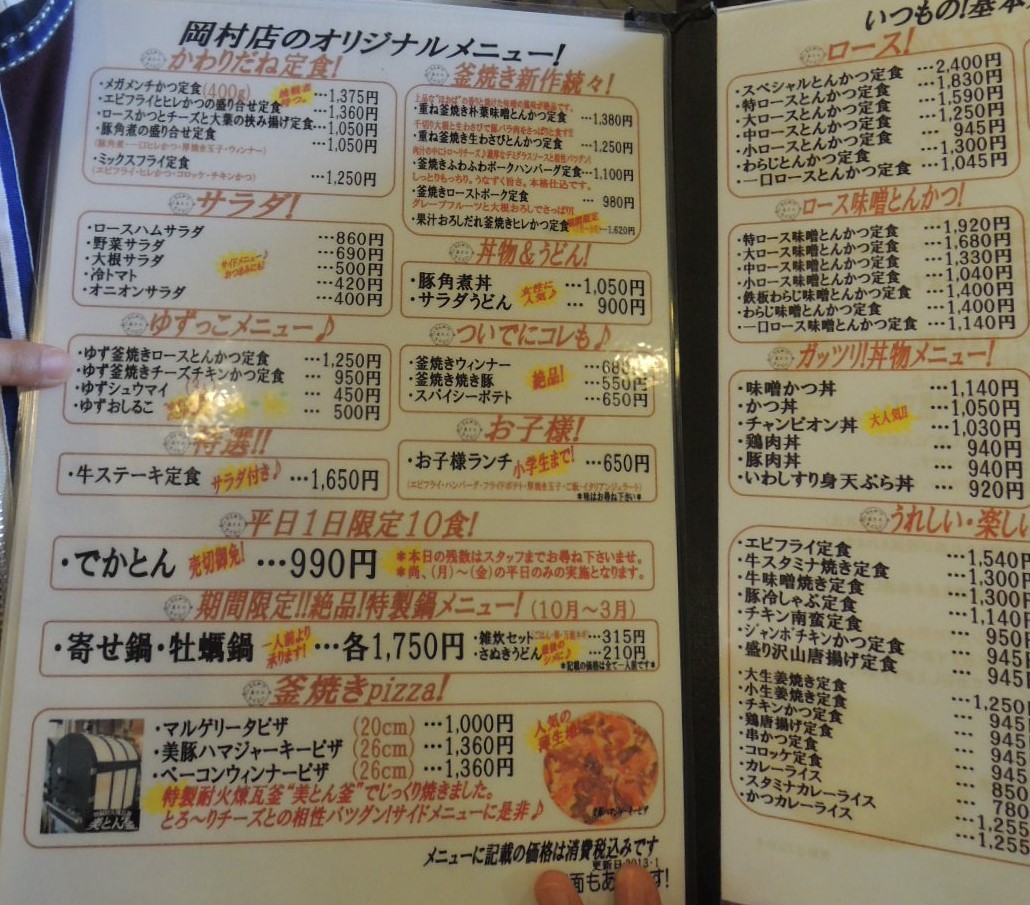 岡村店のオリジナルメニュー!
かわりだね定食!
・メガメンチかつ定食(400g) …1,375円
・エビフライとヒレかつの盛り合せ定食 …1,360円
・ロースかつとチーズと大葉の挟み揚げ定食 …1,050円
・豚角煮の盛り合せ定食 …1,050円
(豚角煮・一口ヒレかつ・厚焼き玉子・ウィンナー)
・ミックスフライ定食
(エビフライ・ヒレかつ・コロッケ・チキンかつ) …1,250円
サラダ!
・ロースハムサラダ …860円
・野菜サラダ …690円
・大根サラダ …500円
・冷トマト …420円
・オニオンサラダ …400円
サイドメニュー♪
おつまみにも!
ゆずっこメニュー♪
・ゆず釜焼きロースとんかつ定食 …1,250円
・ゆず釜焼きチーズチキンかつ定食 …950円
・ゆずシュウマイ 450円
・ゆずおしるこ …500円
特選!!
・牛ステーキ定食 サラダ付き♪ …1,650円
釜焼き新作続々!
・重ね釜焼き朴葉味噌とんかつ定食 …1,380円
千切り大根と生わさびで豚バラ肉をさっぱりと食す!!
・重ね釜焼き生わさびとんかつ定食 …1,250円
肉汁の中にトロ～リチーズ♪濃厚なデミグラスソースと相性バツグン!
・釜焼きふわふわポークハンバーグ定食 …1,100円
しっとりもっちり。うなずく旨さ。本格仕込です。
・釜焼きローストポーク定食 … 980円
グレープフルーツと大根おろしでさっぱり!
・果汁おろしだれ釜焼きヒレかつ定食 期間限定 …1,620円
丼物&うどん!
・豚角煮丼 …1,050円
・サラダうどん … 900円
女性に
人気♪
ついでにコレも♪
・釜焼きウィンナー …680円
・釜焼き焼き豚 …550円
・スパイシーポテト …650円
絶品!
お子様!
・お子様ランチ 小学生まで! …650円
(エビフライ・ハンバーグ・フライドポテト・厚焼き玉子・ご飯・イタリアンジェラート)
*味はお尋ね下さい*
平日1日限定10食!
・でかとん 売切御免! …990円
*本日の残数はスタッフまでお尋ね下さいませ。
*尚、(月)～(金)の平日のみの実施となります。
期間限定!!絶品!特製鍋メニュー!(10月～3月)
・寄せ鍋・牡蠣鍋 一人前より承ります! …各1,750円
・雑炊セット …315円
・さぬきうどん …210円
*記載の価格は全て一人前です*
釜焼きpizza!
・マルゲリータピザ (20cm) …1,000円
・美豚ハマジャーキーピザ (26cm) …1,360円
・ベーコンウィンナーピザ (26cm) …1,360円
特製耐火煉瓦釜“美とん釜”でじっくり焼きました。
とろ～りチーズとの相性バツグン!サイドメニューに是非♪
メニューに記載の価格は消費税込みです
更新日2013・1
いつもの!基本
ロース!
・スペシャルとんかつ定食 …2,400円
・特ロースとんかつ定食 …1,830円
・大ロースとんかつ定食 …1,590円
・中ロースとんかつ定食 …1,250円
・小ロースとんかつ定食 … 945円
・わらじとんかつ定食 …1,300円
・一口ロースとんかつ定食 …1,045円
ロース味噌とんかつ!
・特ロース味噌とんかつ定食 …1,920円
・大ロース味噌とんかつ定食 …1,680円
・中ロース味噌とんかつ定食 …1,330円
・小ロース味噌とんかつ定食 …1,040円
・鉄板わらじ味噌とんかつ定食 …1,400円
・わらじ味噌とんかつ定食 …1,400円
・一口ロース味噌とんかつ定食 …1,140円
ガッツリ!丼物メニュー!
・味噌かつ丼 …1,140円
・かつ丼 …1,050円
・チャンピオン丼 大人気!! …1,030円
・鶏肉丼 … 940円
・豚肉丼 … 940円
・いわしすり身天ぷら丼 … 920円
うれしい・楽しい
・エビフライ定食 …1,540円
・牛スタミナ焼き定食 …1,300円
・牛味噌焼き定食 …1,300円
・豚冷しゃぶ定食 …1,140円
・チキン南蛮定食 … 950円
・ジャンボチキンかつ定食 … 945円
・盛り沢山唐揚げ定食 … 945円
・大生姜焼き定食 …1,250円
・小生姜焼き定食 … 945円
・チキンかつ定食 … 945
・鶏唐揚げ定食 … 945
・串かつ定食 … 945
・コロッケ定食 … 850
・カレーライス … 780
・スタミナカレーライス …1,255
・かつカレーライス …1,255